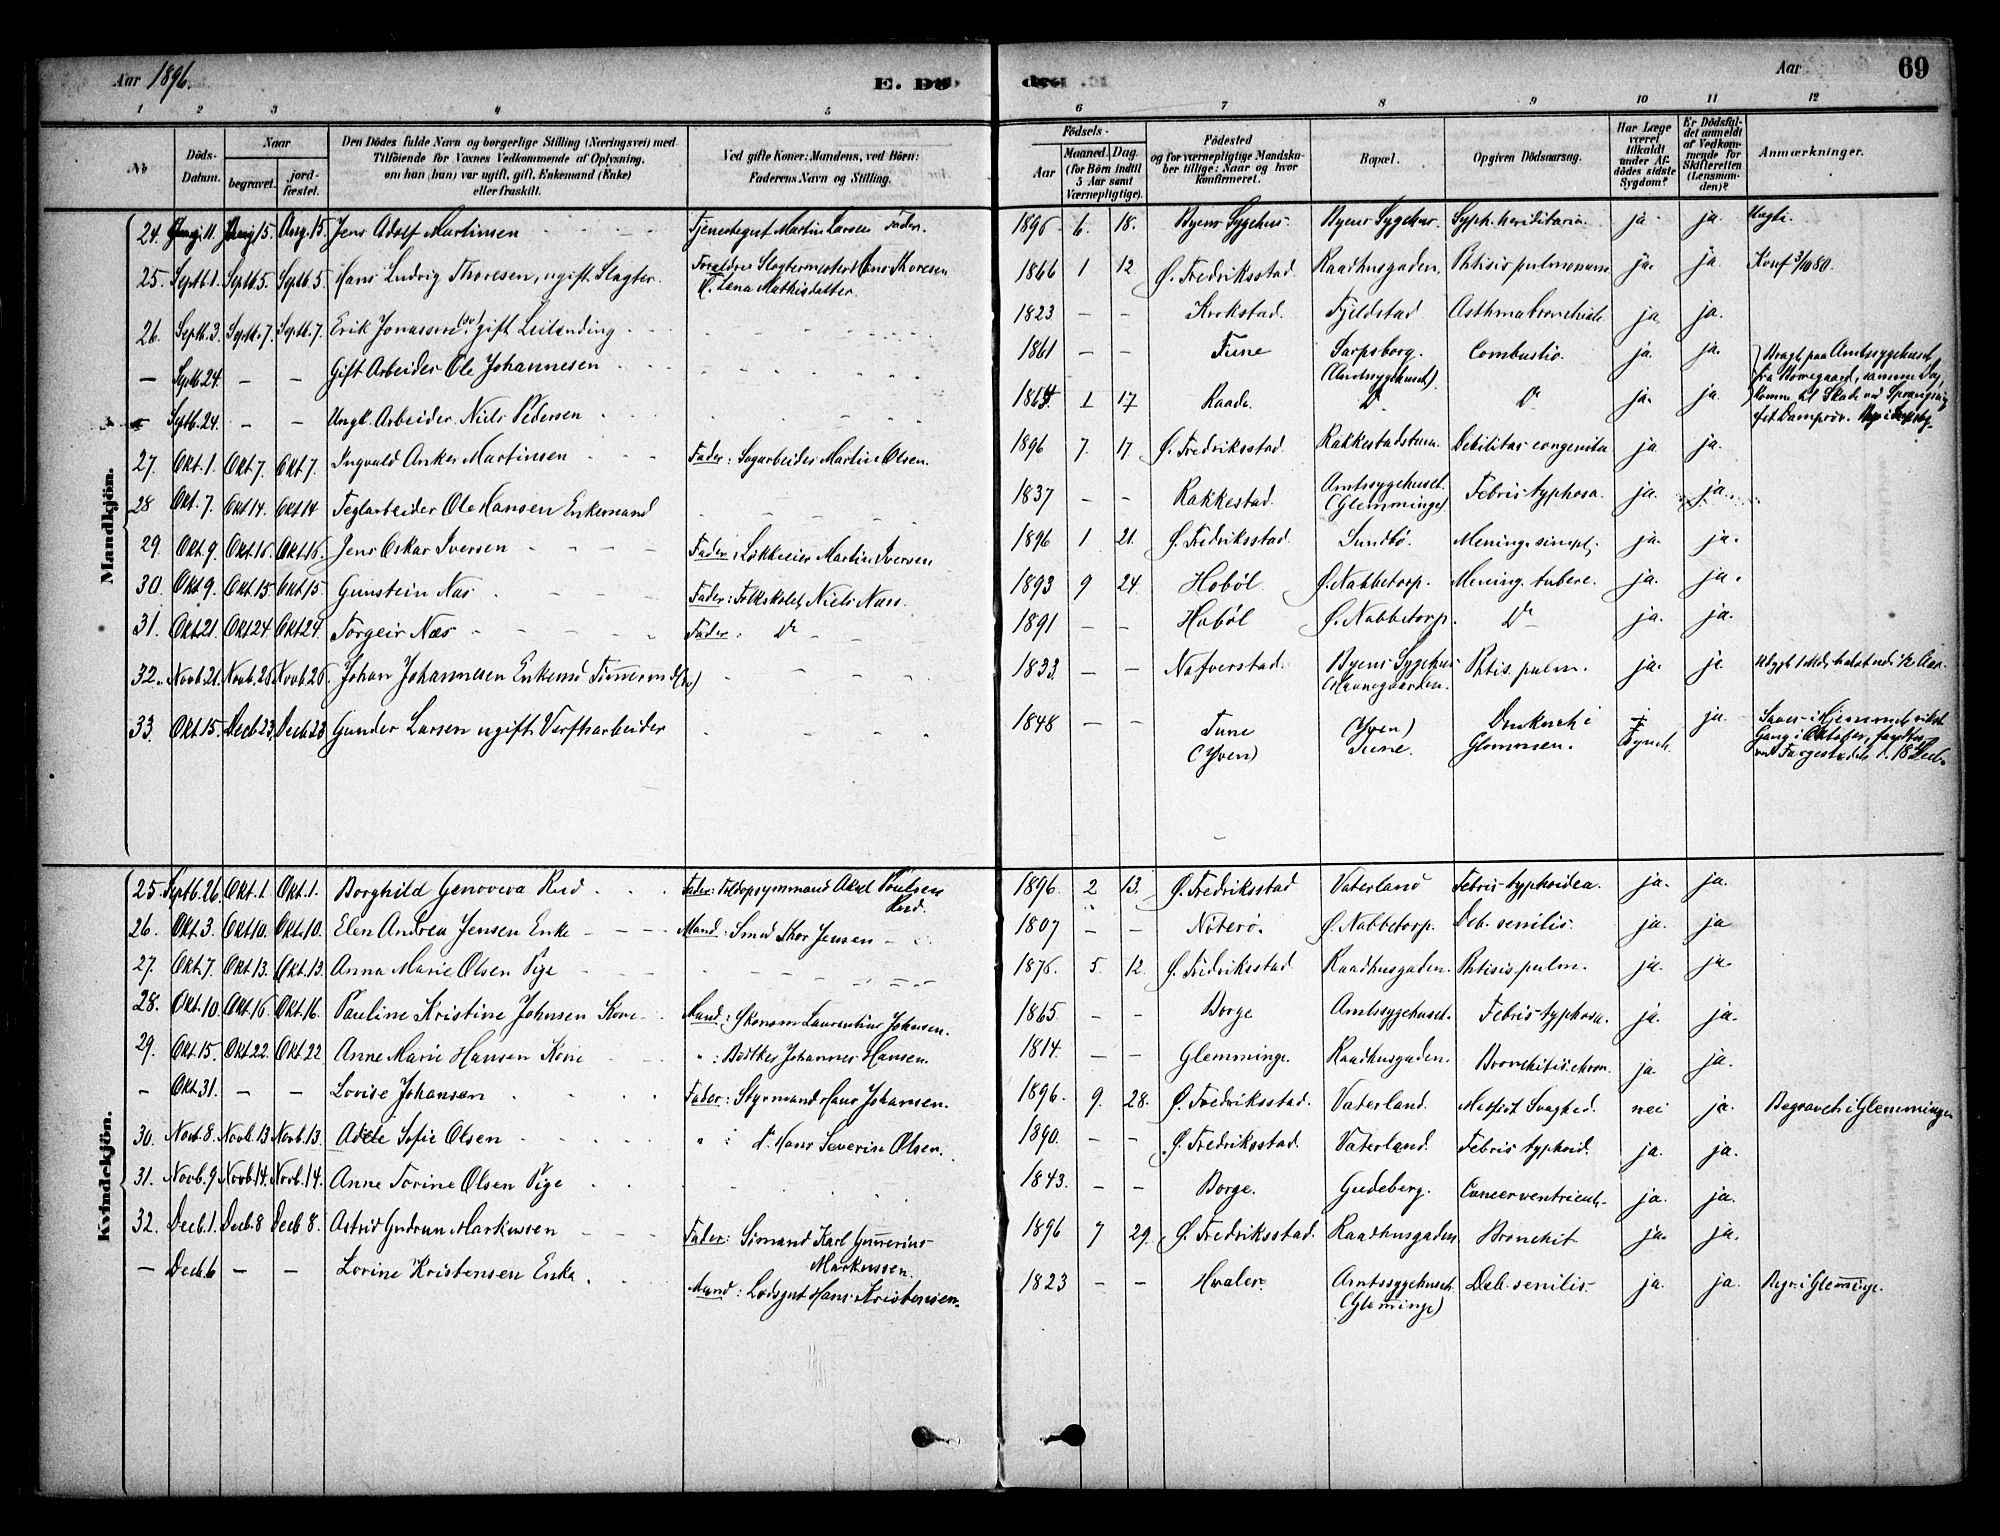 Aar 1896.
E. Dö
E. dro
Aar
69
1 2 3 4 5 6 7 8 9 10 11 12
No
Döds-
Datum.
Naar
begravet.
jord-
fæstet.
Den Dödes fulde Navn og borgerlige Stilling (Næringsvei) med
Tilföiende for Voxnes Vedkommende af Oplysning,
om han (hun) var ugift, gift, Enkemand (Enke)
eller fraskilt.
Ved gifte Koner: Mandens, ved Börn:
Faderens Navn og Stilling.
Födsels-
Aar
Maaned. Dag.
(for Börn indtil
5 Aar samt
Værnepligtige).
Födested
og for værnepligtige Mandska-
ber tillige: Naar og hvor
konfirmeret.
Bopæl.
Opgiven Dödsaarsag.
Har Læge
været
tilkaldt
under Af-
dödes sidste
Sygdom?
Er Dödsfal-
det anmeldt
af Vedkom-
mende for
Skifteretten
(Lensman-
den)?
Anmærkninger.
Mandkjön.
24. 11. 15. Aug. 15. Jens Adolf Martinsen Tjenestegut Martin Larsen Fader. 1896 6. 18. Byens Sygehus Byens Sygehus. Syph. heriditaria ja ja. Uægte.
25. Septb. 1. Septb. 5. Septb. 5. Hans Ludvig Thoresen, ugift Slagter. Forældre Slagtermester Hans Thoresen 1866 1 12 Ø. Fredriksstad. Raadhusgaden. Phtisis pulmonum ja. ja. Konf 3/10 80.
Lena Mathisdatter
26. Septb. 3. Septb. 7. Septb. 7. Erik Jonassen gift Leilending 1823 - - Krokstad. Fjeldstad Asthma bronchiale ja. ja.
- Septb. 24. - - Gift Arbeider Ole Johannesen 1861 - - Tune Sarpsborg. Combustio. ja. ja. Bragt paa Amtssygehuset
(Amtssygehuset) fra samme Dag,
- Septb. 24. - - Ungk. Arbeider Niels Pedersen 1 17 Raade. Do Do ja. ja. komme til Skade ved Sprængning
27. Okt. 1. Okt. 7. Okt 7. Ingvald Anker Martinsen Fader: Sagarbeider Martin Olsen. 1896 7. 17 Ø. Fredriksstad. Rakkestadstun. Debilitas congenita ja ja.
28 Okt. 7. Okt 14. Okt 14 Teglarbeider Ole Hansen Enkemand 1837 - - Rakkestad. Amtssygehuset Febris typhosa. ja. ja.
(Glemminge)
29. Okt. 9. Okt. 16. Okt. 16. Jens Oskar Iversen Fader: Løkkeeier Martin Iversen 1896 1 21. Ø. Fredriksstad. Sundbø. Mening. simpl. ja. ja.
30. Okt 9. Okt. 15 Okt 15. Gunstein Næs Fader: Niels Næss. 1893 9 24. Hobøl. Ø. Nabbetorp. Mening. tuberc. ja. ja.
31. Okt 21. Okt 24 Okt 24. Torgeir Næs Fader: Do 1891 - - Hobøl Ø. Nabbetorp. Do ja. ja.
32. Novb. 21. Novb. 26 Novb. 26. Johan Johannesen Enkemd Tømmermd 1833. - - Nafverstad. Byens Sygehus Phtis. pulm. ja. ja
(Havnegaarden.
33. Okt. 15. Decb. 23. Decb. 23 Gunder Larsen ugift Verftsarbeider 1848 - - Tune (Yven) Druknet i ja.
(Yven) Tune. Glommen. Gang i Oktober, fandtes
ved Færgestedet d. 18 Decb.
Kvindekjön.
25. Septb. 26. Okt. 1. Okt. 1. Borghild Genoveva Rud Fader: Toldopsynmand Aksel Poulsen 1896 2 13. Ø. Fredriksstad Vaterland Febris typhoidea. ja. ja.
Rud.
26. Okt. 3. Okt 10. Okt. 10. Elen Andrea Jensen Enke Mand: Smed Thor Jensen 1807 - - Nøterø. Ø. Nabbetorp. Deb. senilis. ja. ja
27. Okt. 7. Okt. 13. Okt. 13. Anna Marie Olsen Pige 1876. 5. 12. Ø. Fredriksstad Raadhusgaden. Phtisis pulm. ja. ja.
28. Okt. 10. Okt. 16. Okt. 16. Pauline Kristine Johnsen Kone Mand: Økonom Laurentius Johnsen. 1865 - - Borge Amtssygehuset. Febris typhosa. ja. ja.
29. Okt. 15. Okt 22. Okt 22 Anne Marie Hansen Kone " : Bødtker Johannes Hansen. 1814. - - Glemminge. Raadhusgaden. Bronchitis chron. ja. ja.
- Okt. 31. - - Lovise Johansen Fader: Styrmand Hans Johansen. 1896. 9. 28. Ø. Fredriksstad. Vaterland. Medfødt Svaghed. nei ja. Begravet i Glemminge
30. Novb. 8. Novb. 13 Novb. 13. Adele Sofie Olsen " : Do Hans Severin Olsen. 1890. - - Ø. Fredriksstad. Vaterland. Febris typhoid. ja. ja.
31. Novb. 9 Novb. 14. Novb. 14. Anne Torine Olsen Pige 1843. - - Borge. Gudeberg. Cancer ventriculi. ja. ja.
32. Decb. 1. Decb. 8 Decb 8. Astrid Gudrun Markussen Fader: Sømand Karl Gunerius 1896 7 29. Ø. Fredriksstad. Raadhusgaden Bronchit ja. ja.
Markussen.
- Decb. 6 - - Lovine Kristensen Enke. Mand: Lodsgut Hans Kristensen. 1823 - - Hvaler. Amtssygehuset Deb. senilis. ja. ja. Begr. i Glemminge.
(Glemminge)